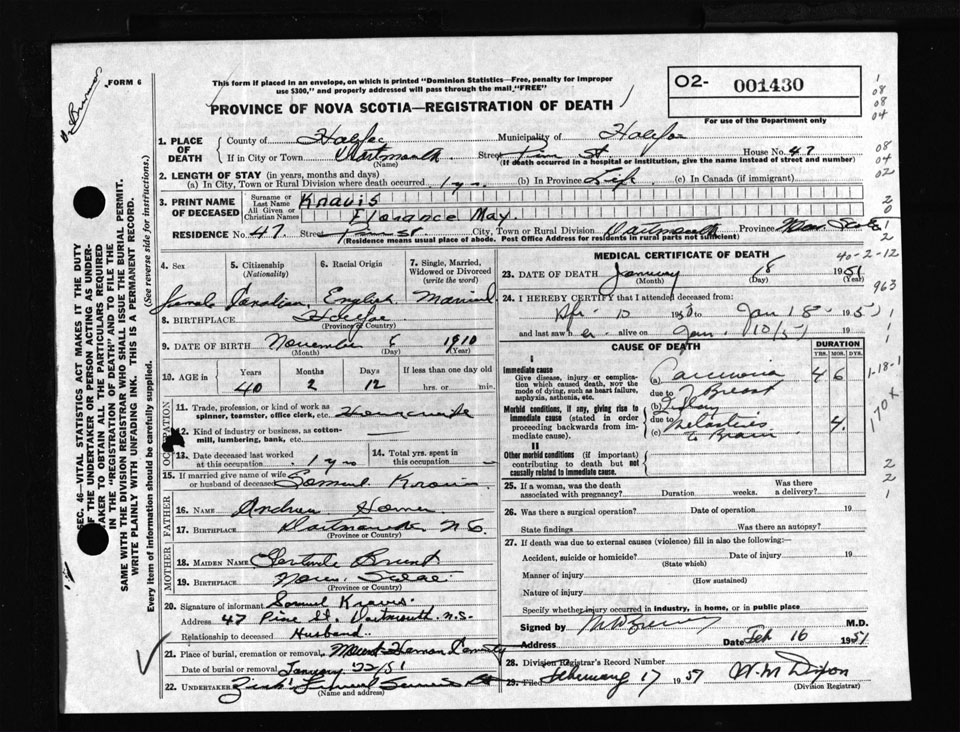 FORM 6
This form if placed in an envelope, on which is printed "Dominion Statistics—Free, penalty for improper
use $300," and properly addressed will pass through the mail "FREE"
PROVINCE OF NOVA SCOTIA—REGISTRATION OF DEATH
O2- 001430
For use of the Department only
1. PLACE OF DEATH
County of Halifax Municipality of Halifax
If in City or Town Dartmouth (Name) Street Pine St. House No. 47
(If death occurred in a hospital or institution, give the name instead of street and number)
2. LENGTH OF STAY (in years, months and days)
(a) In City, Town or Rural Division where death occurred 1 yr. (b) In Province Life (c) In Canada (if immigrant)
3. PRINT NAME OF DECEASED
Surname or Last Name Knavis
All Given or Christian Names Florance May.
RESIDENCE No. 47. Street Pine St. City, Town or Rural Division Dartmouth Province Nova Scotia
(Residence means usual place of abode. Post Office Address for residents in rural parts not sufficient)
4. Sex Female
5. Citizenship (Nationality) Canadian
6. Racial Origin English
7. Single, Married, Widowed or Divorced (write the word) Married
8. BIRTHPLACE Halifax
(Province or Country)
9. DATE OF BIRTH November 6 1910
(Month) (Day) (Year)
10. AGE in Years Months Days If less than one day old
40 2 12 hrs. or min.
OCCUPATION
11. Trade, profession, or kind of work as spinner, teamster, office clerk, etc. Housewife
12. Kind of industry or business, as cotton-mill, lumbering, bank, etc. —
13. Date deceased last worked at this occupation 1 yr.
14. Total yrs. spent in this occupation —
15. If married give name of wife or husband of deceased Samuel Kravis
FATHER
16. Name Andrew
17. BIRTHPLACE Dartmouth N S
(Province or Country)
MOTHER
18. MAIDEN NAME Gertrude
19. BIRTHPLACE Nova Scotia
(Province or Country)
20. Signature of informant Samuel Kravis
Address 47 Pine St. Dartmouth N.S.
Relationship to deceased Husband
21. Place of burial, cremation or removal Mount Hermon Cemetery
Date of burial or removal January 22/51
22. UNDERTAKER
(Name and address)
MEDICAL CERTIFICATE OF DEATH
23. DATE OF DEATH January 18 1951
(Month) (Day) (Year)
24. I HEREBY CERTIFY that I attended deceased from:
Apr 10 19 to Jan 18 - 1951
and last saw her alive on Jan. 10/51 19
CAUSE OF DEATH
DURATION
YRS. MOS. DYS.
I
Immediate cause
Give disease, injury or complication which caused death, NOT the mode of dying, such as heart failure, asphyxia, asthenia, etc.
(a) Carcinoma 4 6
due to Breast
Morbid conditions, if any, giving rise to immediate cause (stated in order proceeding backwards from immediate cause).
(b)
due to
(c) Metastases to Brain 4.
II
Other morbid conditions (if important) contributing to death but not causally related to immediate cause.
25. If a woman, was the death associated with pregnancy? Duration weeks. Was there a delivery?
26. Was there a surgical operation? Date of operation 19
State findings Was there an autopsy?
27. If death was due to external causes (violence) fill in also the following:—
Accident, suicide or homicide? Date of injury 19
(State which)
Manner of injury
(How sustained)
Nature of injury
Specify whether injury occurred in industry, in home, or in public place
Signed by M.D.
Address Date Feb 16 1951
28. Division Registrar's Record Number
29. Filed February 17 1951 W. M. Dixon
(Division Registrar)
SEC. 46—VITAL STATISTICS ACT MAKES IT THE DUTY
OF THE UNDERTAKER OR PERSON ACTING AS UNDER-
TAKER TO OBTAIN ALL THE PARTICULARS REQUIRED
IN THE "REGISTRATION OF DEATH" AND TO FILE THE
SAME WITH THE DIVISION REGISTRAR WHO SHALL ISSUE THE BURIAL PERMIT.
WRITE PLAINLY WITH UNFADING INK. THIS IS A PERMANENT RECORD.
Every item of information should be carefully supplied. (See reverse side for instructions.)
1
08
08
04
08
04
02
2
0
1
2
40-2-12
963
1
1
1-18-1
170 x
2
2
1